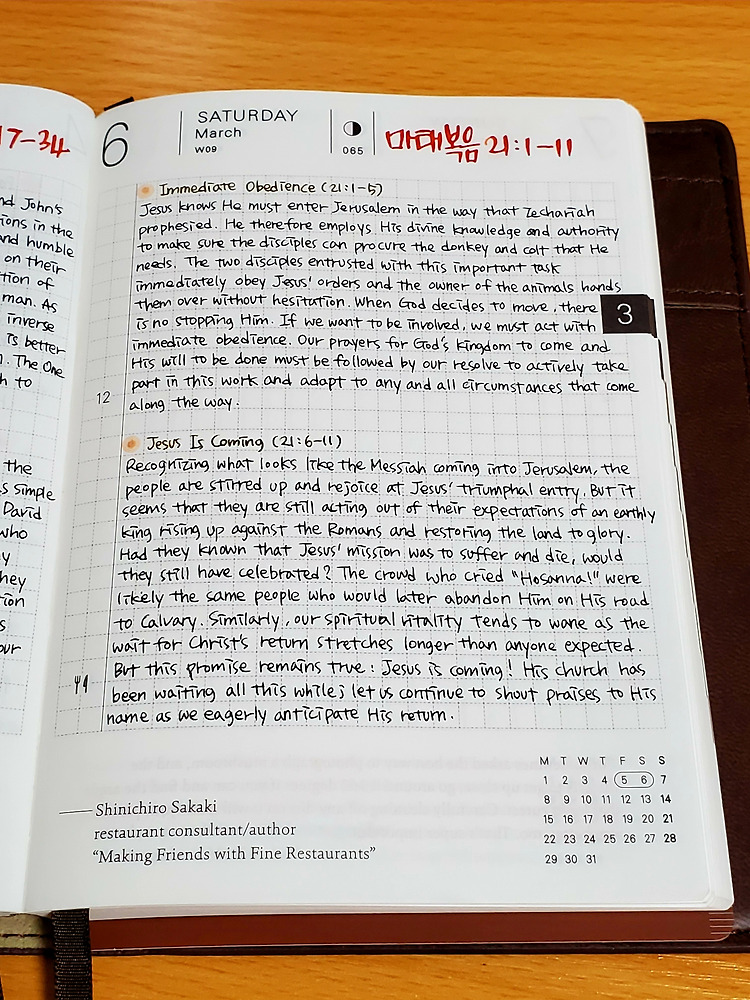 17-34
nd John's
ions in the
and humble
on their
tion of
man. As
inverse
is better
. The One
h to
the
s simple
David
who
y
hey
tion
s
our
6
SATURDAY
March
W09
065
마태복음 21:1-11
Immediate Obedience (21:1-5)
Jesus knows He must enter Jerusalem in the way that Zechariah
prophesied. He therefore employs His divine knowledge and authority
to make sure the disciples can procure the donkey and colt that He
needs. The two disciples entrusted with this important task
immediately obey Jesus' orders and the owner of the animals hands
them over without hesitation. When God decides to move, there
is no stopping Him. If we want to be involved, we must act with
immediate obedience. Our prayers for God's Kingdom to come and
His will to be done must be followed by our resolve to actively take
part in this work and adapt to any and all circumstances that come
along the way.
3
12
Jesus Is Coming (21:6-11)
Recognizing what looks like the Messiah coming into Jerusalem, the
people are stirred up and rejoice at Jesus' triumphal entry. But it
seems that they are still acting out of their expectations of an earthly
king rising up against the Romans and restoring the land to glory.
Had they known that Jesus' mission was to suffer and die, would
they still have celebrated? The crowd who cried "Hosanna!" were
likely the same people who would later abandon Him on His road
to Calvary. Similarly, our spiritual vitality tends to wane as the
wait for Christ's return stretches longer than anyone expected.
But this promise remains true: Jesus is coming! His church has
been waiting all this while; let us continue to shout praises to His
name as we eagerly anticipate His return.
Shinichiro Sakaki
restaurant consultant/author
"Making Friends with Fine Restaurants"
M T W T F S S
1 2 3 4 5 6 7
8 9 10 11 12 13 14
15 16 17 18 19 20 21
22 23 24 25 26 27 28
29 30 31